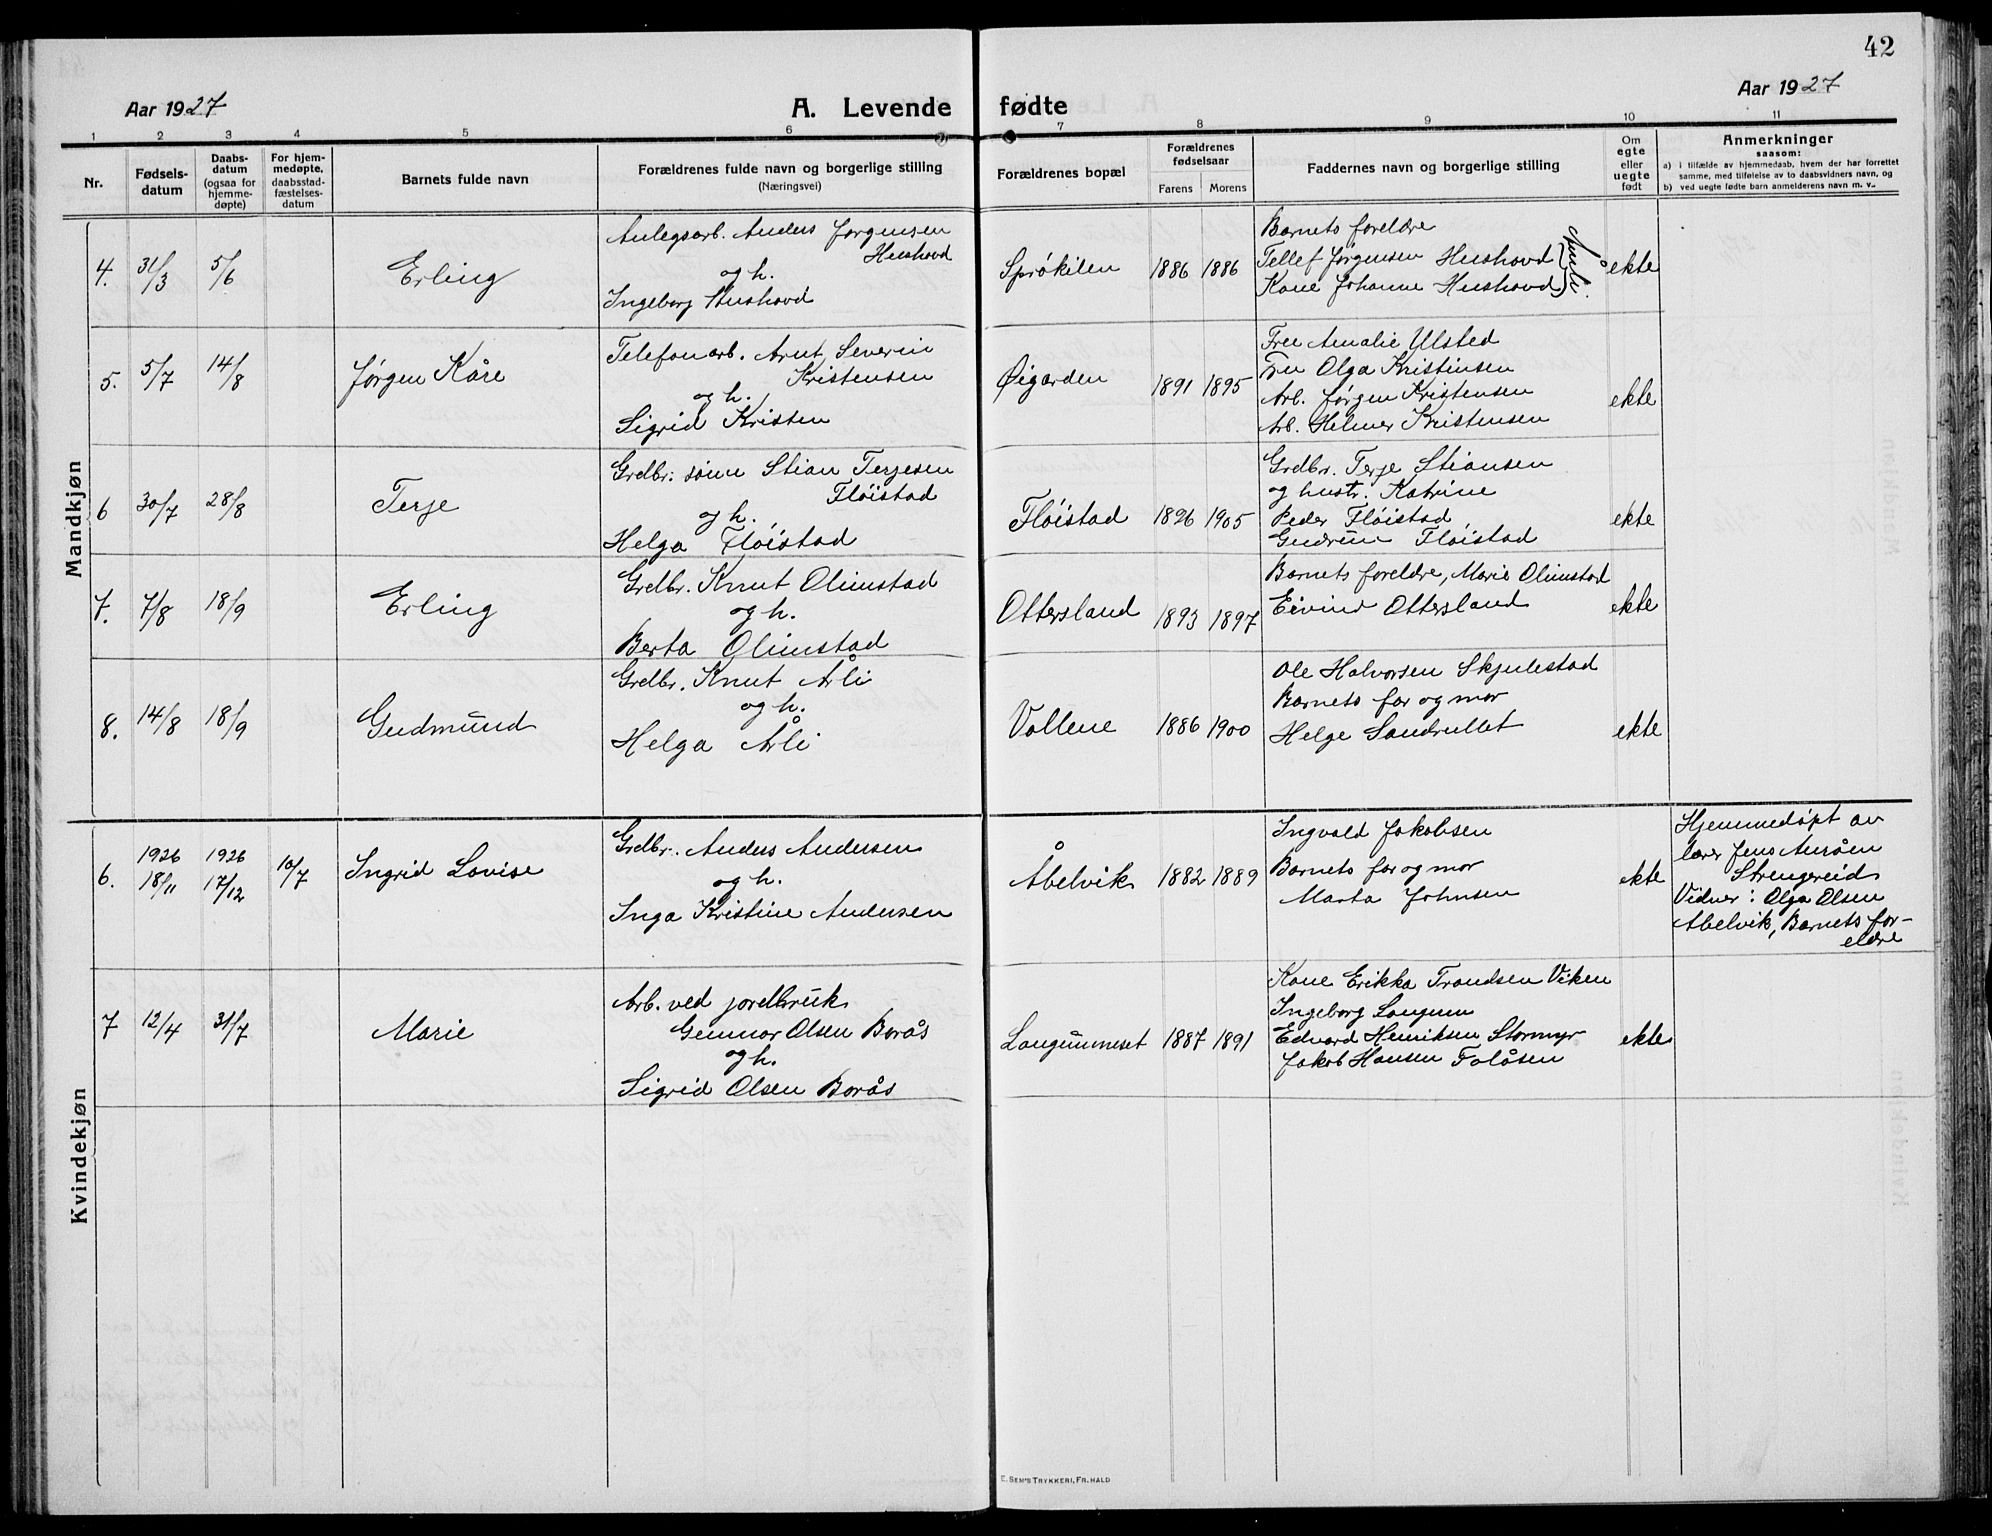 42
Aar 1927
A. Levende fødte
Aar 1927
1 2 3 4 5 6 7 8 9 10 11
Nr.
Fødsels-
datum
Daabs-
datum
(ogsaa for
hjemme-
døpte)
For hjem-
medøpte,
daabsstad-
fæstelses-
datum
Barnets fulde navn
Forældrenes fulde navn og borgerlige stilling
(Næringsvei)
Forældrenes bopæl
Forældrenes
fødselsaar
Farens Morens
Faddernes navn og borgerlige stilling
Om
egte
eller
uegte
født
Anmerkninger
saasom:
a) i tilfælde av hjemmedaab, hvem der har forrettet
samme, med tilføielse av to daabsvidners navn, og
b) ved uegte fødte barn anmelderens navn m. v.
Mandkjøn
4. 31/3 5/6 Erling
Anlegsarb. Anders Jørgensen
Hushovd
og h.
Ingeborg Hushovd
Sprøkilen 1886 1886
Barnets foreldre
Tellef Jørgensen Hushovd
Kone Johanne Hushovd
ekte
5. 5/7 14/8 Jørgen Kåre
Telefonarb. Arnt Severin
Kristensen
og h.
Sigrid Kristen
Øigarden 1891 1895
Fru Amalie Ulsted
Fru Olga Kristensen
Arb. Jørgen Kristensen
Arb. Helmer Kristensen
ekte
6 30/7 28/8 Terje
Grdbr. sønn Stian Terjesen
Fløistad
og h.
Helga Fløistad
Fløistad 1896 1905
Grdbr. Terje Stiansen
og hustr. Katrine
Peder Fløistad
Gudrun Fløistad
ekte
7. 7/8 18/9 Erling
Grdbr. Knut Olimstad
og h.
Berta Olimstad
Ottersland 1893 1897
Barnets foreldre, Marie Olimstad
Eivind Ottersland
ekte
8. 14/8 18/9 Gudmund
Grdbr. Knut Arli
og h.
Helga Årli
Vollene 1886 1900
Ole Halvorsen Skjulestad
Barnets far og mor
Helge Sandvullet
ekte
Kvindekjøn
6. 1926 18/11 1926 17/12 10/7 Ingrid Lovise
Grdbr. Anders Andersen
og h.
Inga Kristine Andersen
Åbelvik 1882 1889
Ingvald Jakobsen
Barnets far og mor
Marta Johnsen
ekte
Hjemmedøpt av
lærer Jens Auråen
Strengereid
Vidner: Olga Olsen
Abelvik, Barnets for-
eldre
7 12/4 31/7 Marie
Arb. ved jordbruk
Gunnar Olsen Borås
og h.
Sigrid Olsen Borås
Langumneset 1887 1891
Kone Erikka Trondsen Viken
Ingeborg Langum
Edvard Henriksen Stormyr
Jakob Hansen Folåsen
ekte
E. SEM'S TRYKKERI, FR.HALD